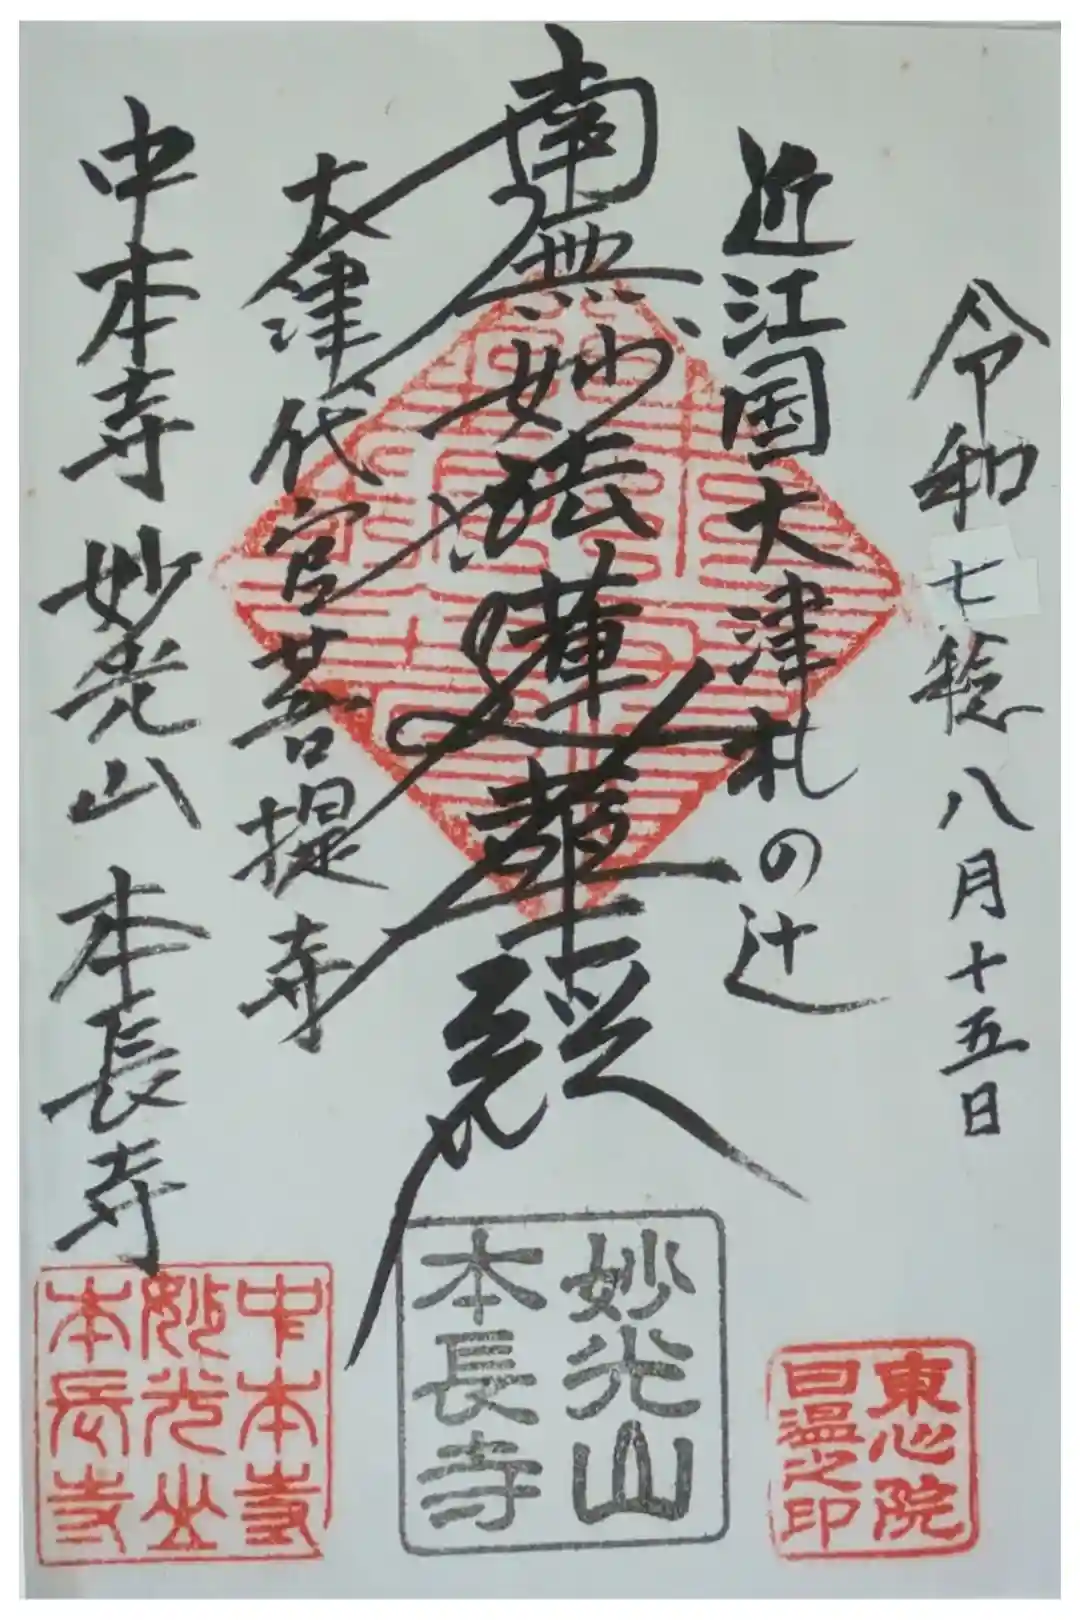 令和七稔八月十五日
近江国大津札の辻
南無妙法蓮華経
大津代官菩提寺
中本寺 妙光山 本長寺
東心院
日温之印
妙光山
本長寺
中本寺
妙光山
本長寺